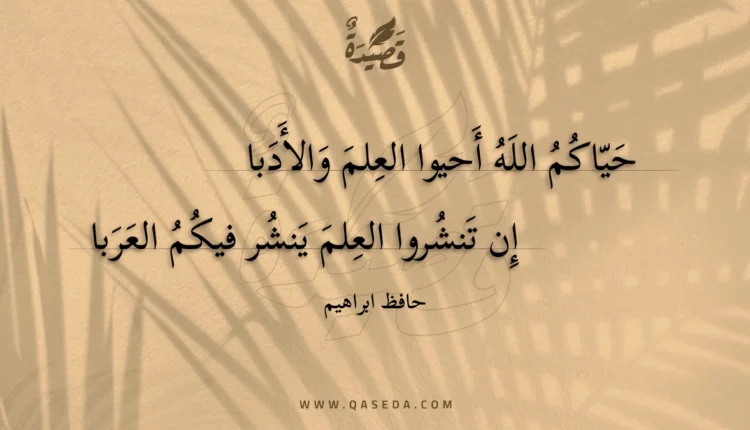 قَصِيْدَةٌ
حَيّاكُمُ اللَهُ أَحيوا العِلمَ وَالأَدَبا
إِن تَنشُروا العِلمَ يَنشُر فيكُمُ العَرَبا
حافظ ابراهيم
WWW.QASEDA.COM